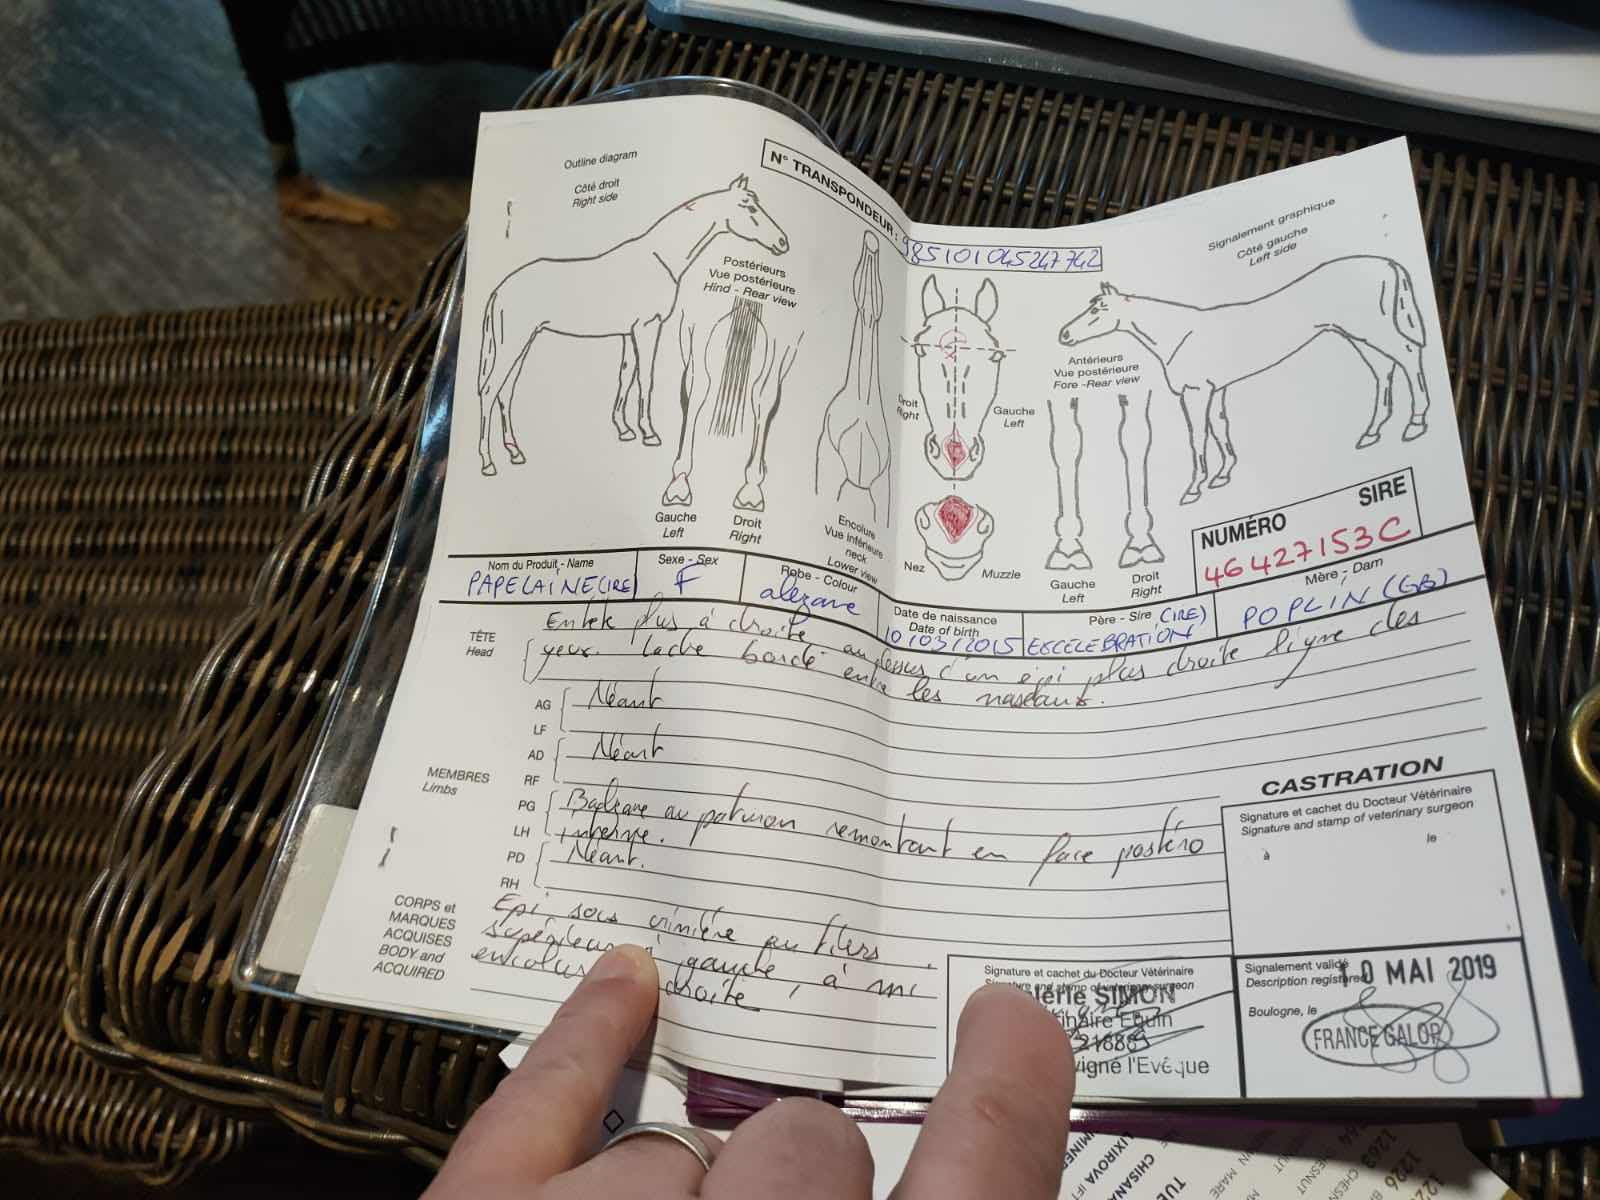 Outline diagram
Côté droit
Right side
N° TRANSPONDEUR : 985101045247742
Signalement graphique
Côté gauche
Left side
Postérieurs
Vue postérieure
Hind - Rear view
Antérieurs
Vue postérieure
Fore - Rear view
Droit
Right
Gauche
Left
Gauche
Left
Droit
Right
Encolure
Vue inférieure
neck
Lower view
Nez
Muzzle
Gauche
Left
Droit
Right
NUMÉRO SIRE
46427153C
Nom du Produit - Name
PAPELAÏNE (IRE)
Sexe - Sex
F
Robe - Colour
alezane
Date de naissance
Date of birth
10/03/2015
Père - Sire (IRE)
EXCELEBRATION
Mère - Dam
POPLIN (GB)
TÊTE
Head
En tête plus à droite au dessus d'un épi plus droite ligne des
yeux. Tache bordé entre les naseaux.
AG
LF
Néant
AD
RF
Néant
MEMBRES
Limbs
PG
LH
Balzane au paturon remontant en face postéro
interne.
PD
RH
Néant.
CORPS et
MARQUES
ACQUISES
BODY and
ACQUIRED
Epi sous crinière au tiers
supérieur à gauche, à mi
droite
CASTRATION
Signature et cachet du Docteur Vétérinaire
Signature and stamp of veterinary surgeon
à
le
Signature et cachet du Docteur Vétérinaire
and stamp of veterinary surgeon
SIMON
Equin
l'Evêque
Signalement validé
Description registered
10 MAI 2019
Boulogne, le
FRANCE GALOP
LIXIROVA
CHISANA